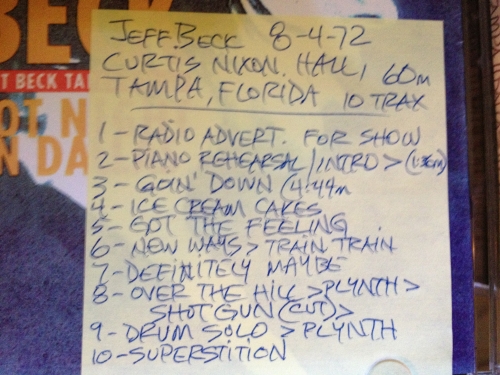 BECK
T BECK TA
OT N
N DA
JEFF BECK 8-4-72
CURTIS NIXON HALL, 60m
TAMPA, FLORIDA 10 TRAX
1 - RADIO ADVERT. FOR SHOW
2 - PIANO REHEARSAL/INTRO >
3 - GOIN' DOWN / 4:49m
4 - ICE CREAM CAKES
5 - GOT THE FEELING
6 - NEW WAYS > TRAIN TRAIN
7 - DEFINITELY MAYBE
8 - OVER THE HILL > PLYNTH >
SHOTGUN (CUT) >
9 - DRUM SOLO > PLYNTH
10 - SUPERSTITION